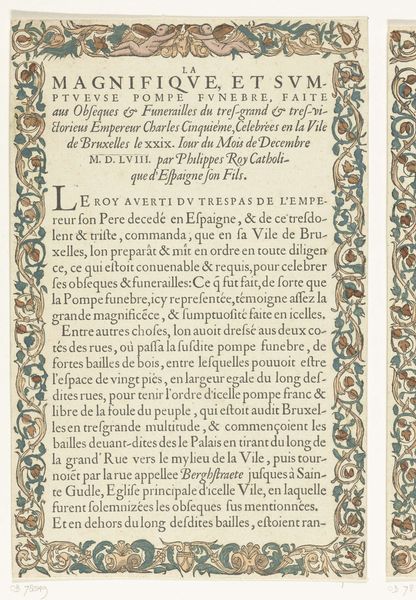 LA
MAGNIFIQVE, ET SVM-
PTVEVSE POMPE FVNEBRE, FAITE
aus Obseques & Funerailles du tres-grand & tres-vi-
ctorieus Empereur Charles Cinquiéme, Celebrées en la Vile
de Bruxelles le XXIX. Iour du Mois de Decembre
M. D. LVIII. par Philippes Roy Catholi-
que d'Espaigne son Fils.
LE ROY AVERTI DV TRESPAS DE L'EMPE-
reur son Pere decedé en Espaigne, & de ce tresdo-
lent & triste, commanda, que en sa Vile de Bru-
xelles, lon preparât & mît en ordre en toute diligen
ce, ce qui estoit conuenable & requis, pour celebrer
ses obseques & funerailles: Ce q̃ fut fait, de sorte que
la Pompe funebre, icy representée, témoigne assez la
grande magnificẽce, & sumptuosité faite en icelles.
Entre autres choses, lon auoit dressé aus deux co-
tés des rues, où passa la susdite pompe funebre, de
fortes bailles de bois, entre lesquelles pouuoit estre
l'espace de vingt piés, en largeur egale du long des-
dites rues, pour tenir l'ordre d'icelle pompe franc &
libre de la foule du peuple, qui estoit audit Bruxel-
les en tresgrande multitude, & commençoient les
bailles deuant-dites des le Palais en tirant du long de
la grand' Rue vers le mylieu de la Vile, puis tour-
noiẽt par la rue appellee Berghstraete jusques à Sain-
te Gudle, Eglise principale d'icelle Vile, en laquelle
furent solemnizées les obseques sus mentionnées.
Et en dehors du long desdites bailles, estoient ran-